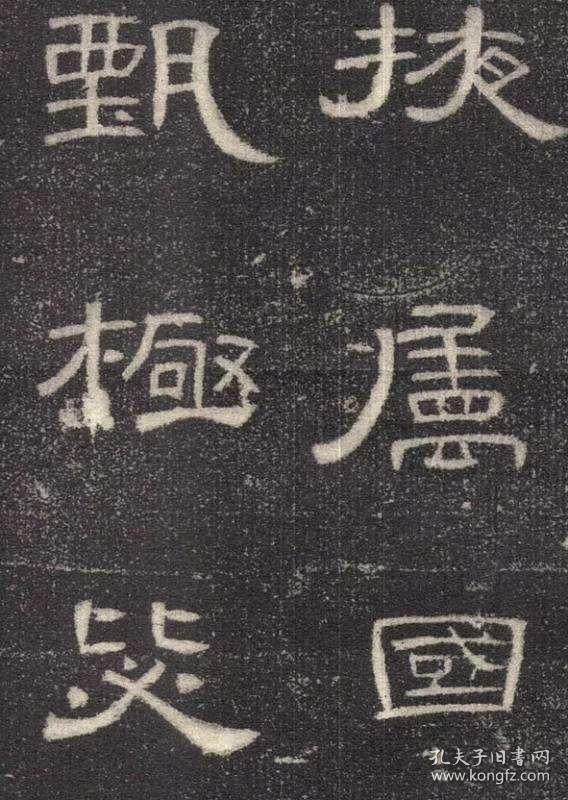 掖屬國
甄極毖
孔夫子旧书网
www.kongfz.com